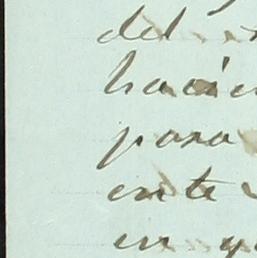 del
hacien
para
ente
en